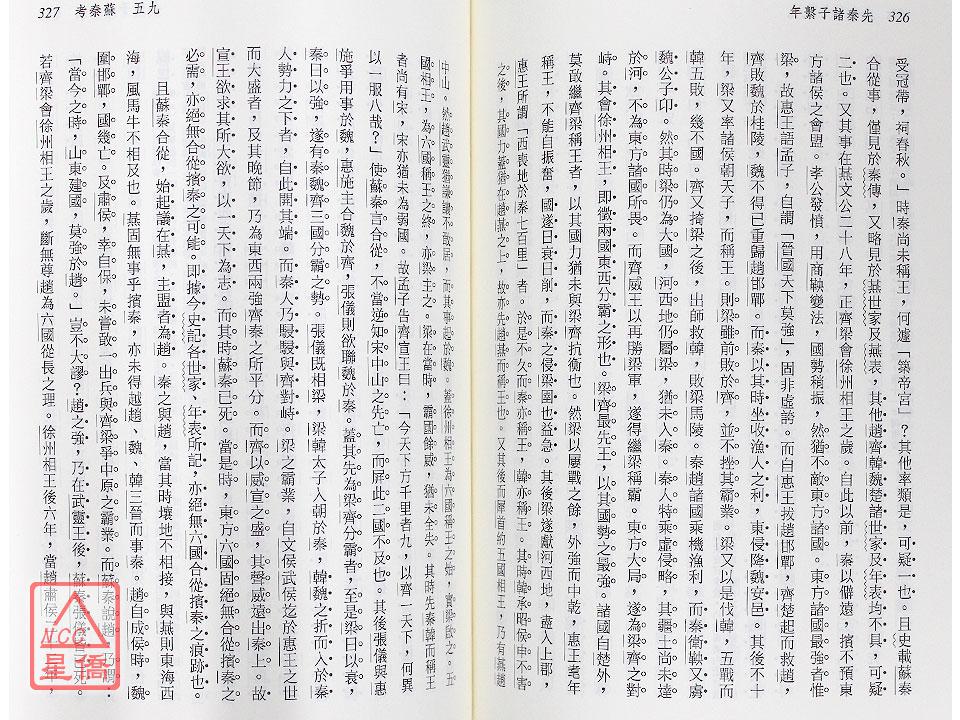 年繫子諸秦先 326
受冠帶，祠春秋。」時秦尚未稱王，何遽「築帝宮」？其他率類是，可疑一也。且史載蘇秦
合從事，僅見於秦傳，又略見於燕世家及燕表，其他趙齊韓魏楚諸世家及年表均不具，可疑
二也。又其事在燕文公二十八年，正齊梁會徐州相王之歲。自此以前，秦以僻遠，擯不預東
方諸侯之會盟。孝公發憤，用商鞅變法，國勢稍振，然猶不敵東方諸國。東方諸國最強者惟
梁，故惠王語孟子，自謂「晉國天下莫強」，固非虛誇。而自惠王拔趙邯鄲，齊楚起而救趙，
齊敗魏於桂陵，魏不得已重歸趙邯鄲。而秦以其時坐收漁人之利，東侵降魏安邑。其後不十
年，梁又率諸侯朝天子，而稱王。則梁雖前敗於齊，並不挫其霸業。梁又以是伐韓，五戰而
韓五敗，幾不國。齊又掎梁之後，出師救韓，敗梁馬陵。秦趙諸國乘機漁利，而秦衛鞅又虜
魏公子卬。然其時梁仍為大國，河西地仍屬梁，猶未入秦。秦人特乘虛侵略，其疆土尚未達
於河，不為東方諸國所畏。而齊威王以再勝梁軍，遂得繼梁稱霸。東方大局，遂為梁齊之對
峙。其會徐州相王，即徵兩國東西分霸之形也。梁齊最先王，以其國勢之最強。諸國自楚外，
莫敢繼齊梁稱王者，以其國力猶未與梁齊抗衡也。然梁以屢戰之餘，外強而中乾，惠王耄年
稱王，不能自振奮，國遂日衰目削，而秦之侵梁圉也益急。其後梁遂獻河西地，盡入上郡，
惠王所謂「西喪地於秦七百里」者。於是不久而秦亦稱王，韓亦稱王。其時韓承昭侯申不害
之後，其國力蓋猶在趙燕之上，故亦先趙燕而稱王也。又其後而犀首約五國相王，乃有燕趙
327 考秦蘇 五九
中山。然趙武靈猶謙讓不敢居，而其事起於魏。蓋徐州相王為六國稱王之始，實梁啟之。五
國相王，為六國稱王之終，亦梁主之。梁在當時，霸國餘威，猶未全失。其時先秦韓而稱王
者尚有宋，宋亦猶未為弱國。故孟子告齊宣王曰：「今天下方千里者九，以齊一天下，何異
以一服八哉？」使蘇秦言合從，不當逆知宋中山之先亡，而屏此二國不及也。其後張儀與惠
施爭用事於魏，惠施主合魏於齊，張儀則欲聯魏於秦。蓋其先為梁齊分霸者，至是梁日以衰，
秦日以強，遂有秦魏齊三國分霸之勢。張儀既相梁，梁韓太子入朝於秦，韓魏之折而入於秦
人勢力之下者，自此開其端。而秦人乃駸駸與齊對峙。梁之霸業，自文侯武侯迄於惠王之世
而大盛者，及其晚節，乃為東西兩強齊秦之所平分。而齊以威宣之盛，其聲威遠出秦上。故
宣王欲求其所大欲，以一天下為志。而其時蘇秦已死。當是時，東方六國固絕無合從擯秦之
必需，亦絕無合從擯秦之可能。即據今史記各世家、年表所記，亦絕無六國合從擯秦之痕跡也。
且蘇秦合從，始起議在燕，主盟者為趙。秦之與趙，當其時壤地不相接，與燕則東海西
海，風馬牛不相及也。燕固無事乎擯秦，亦未得越趙、魏、韓三晉而事秦。趙自成侯時，魏
圍邯鄲，國幾亡。及肅侯，幸自保，未嘗敢一出兵與齊梁爭中原之霸業。而蘇秦說趙，乃謂：
「當今之時，山東建國，莫強於趙。」豈不大謬？趙之強，乃在武靈王後，蘇秦張儀皆已死。
若齊梁會徐州相王之歲，斷無尊趙為六國從長之理。徐州相王後六年，當趙肅侯
NCC
星僑